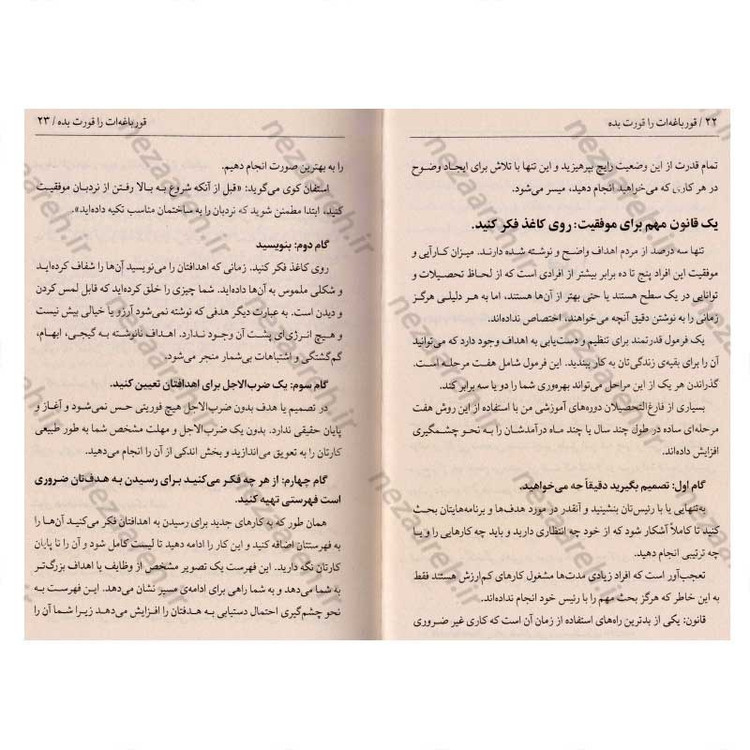 ۲۲ / قورباغه‌ات را قورت بده
تمام قدرت از این وضعیت رایج بپرهیزید و این تنها با تلاش برای ایجاد وضوح
در هر کاری که می‌خواهید انجام دهید، میسر می‌شود.
یک قانون مهم برای موفقیت: روی کاغذ فکر کنید.
تنها سه درصد از مردم اهداف واضح و نوشته شده دارند. میزان کارآیی و
موفقیت این افراد پنج تا ده برابر بیشتر از افرادی است که از لحاظ تحصیلات و
توانایی در یک سطح هستند یا حتی بهتر از آن‌ها هستند، اما به هر دلیلی هرگز
زمانی را به نوشتن دقیق آنچه می‌خواهند، اختصاص نداده‌اند.
یک فرمول قدرتمند برای تنظیم و دست‌یابی به اهداف وجود دارد که می‌توانید
آن را برای بقیه‌ی زندگی‌تان به کار ببندید. این فرمول شامل هفت مرحله است.
گذراندن هر یک از این مراحل می‌تواند بهره‌وری شما را دو یا سه برابر کند.
بسیاری از فارغ‌التحصیلان دوره‌های آموزشی من با استفاده از این روش هفت
مرحله‌ای ساده در طول چند سال یا چند ماه درآمدشان را به نحو چشمگیری
افزایش داده‌اند.
گام اول: تصمیم بگیرید دقیقاً چه می‌خواهید.
به‌تنهایی یا با رئیس‌تان بنشینید و آنقدر در مورد هدف‌ها و برنامه‌هایتان بحث
کنید تا کاملاً آشکار شود که از خود چه انتظاری دارید و باید چه کارهایی را و با
چه ترتیبی انجام دهید.
تعجب‌آور است که افراد زیادی مدت‌ها مشغول کارهای کم‌ارزش هستند فقط
به این خاطر که هرگز بحث مهم را با رئیس خود انجام نداده‌اند.
قانون: یکی از بدترین راه‌های استفاده از زمان آن است که کاری غیر ضروری
قورباغه‌ات را قورت بده / ۲۳
را به بهترین صورت انجام دهیم.
استفان کوی می‌گوید: «قبل از آنکه شروع به بالا رفتن از نردبان موفقیت
کنید، ابتدا مطمئن شوید که نردبان را به ساختمان مناسب تکیه داده‌اید».
گام دوم: بنویسید
روی کاغذ فکر کنید. زمانی که اهدافتان را می‌نویسید آن‌ها را شفاف کرده‌اید
و شکلی ملموس به آن‌ها داده‌اید. شما چیزی را خلق کرده‌اید که قابل لمس کردن
و دیدن است. به عبارت دیگر هدفی که نوشته نمی‌شود آرزو یا خیالی بیش نیست
و هیچ انرژی‌ای پشت آن وجود ندارد. اهداف نانوشته به گیجی، ابهام،
گم‌گشتگی و اشتباهات بی‌شمار منجر می‌شود.
گام سوم: یک ضرب‌الاجل برای اهدافتان تعیین کنید.
در تصمیم یا هدف بدون ضرب‌الاجل هیچ فوریتی حس نمی‌شود و آغاز و
پایان حقیقی ندارد. بدون یک ضرب‌الاجل و مهلت مشخص شما به طور طبیعی
کارتان را به تعویق می‌اندازید و بخش اندکی از آن را انجام می‌دهید.
گام چهارم: از هر چه فکر می‌کنید برای رسیدن به هدف‌تان ضروری
است فهرستی تهیه کنید.
همان طور که به کارهای جدید برای رسیدن به اهدافتان فکر می‌کنید آن‌ها را
به فهرستتان اضافه کنید و این کار را ادامه دهید تا لیست کامل شود و آن را تا پایان
کارتان نگه دارید. این فهرست یک تصویر مشخص از وظایف یا اهداف بزرگ‌تر
به شما می‌دهد و به شما راهی برای ادامه‌ی مسیر نشان می‌دهد. این فهرست به
نحو چشم‌گیری احتمال دستیابی به هدفتان را افزایش می‌دهد زیرا شما آن را
nezaareh.ir